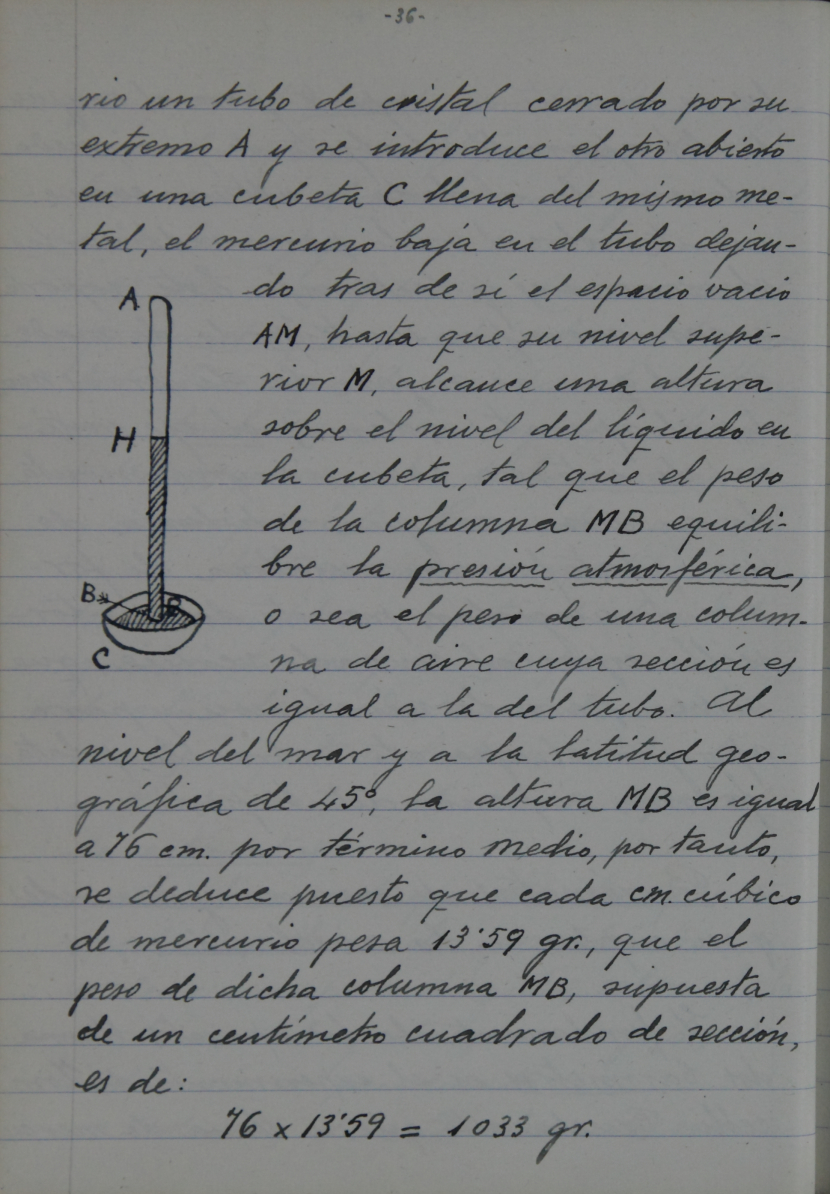 -36-
rio un tubo de cristal cerrado por su
extremo A y se introduce el otro abierto
en una cubeta C llena del mismo me-
tal, el mercurio baja en el tubo dejan-
do tras de sí el espacio vacio
AM, hasta que su nivel supe-
rior M, alcance una altura
sobre el nivel del líquido en
la cubeta, tal que el peso
de la columna MB equili-
bre la presión atmosférica,
o sea el peso de una colum-
na de aire cuya sección es
igual a la del tubo. Al
A
H
B
B
C
nivel del mar y a la latitud geo-
gráfica de 45º, la altura MB es igual
a 76 cm. por término medio, por tanto,
se deduce puesto que cada cm. cúbico
de mercurio pesa 13'59 gr., que el
peso de dicha columna MB, supuesta
de un centímetro cuadrado de sección,
es de:
76 x 13'59 = 1033 gr.